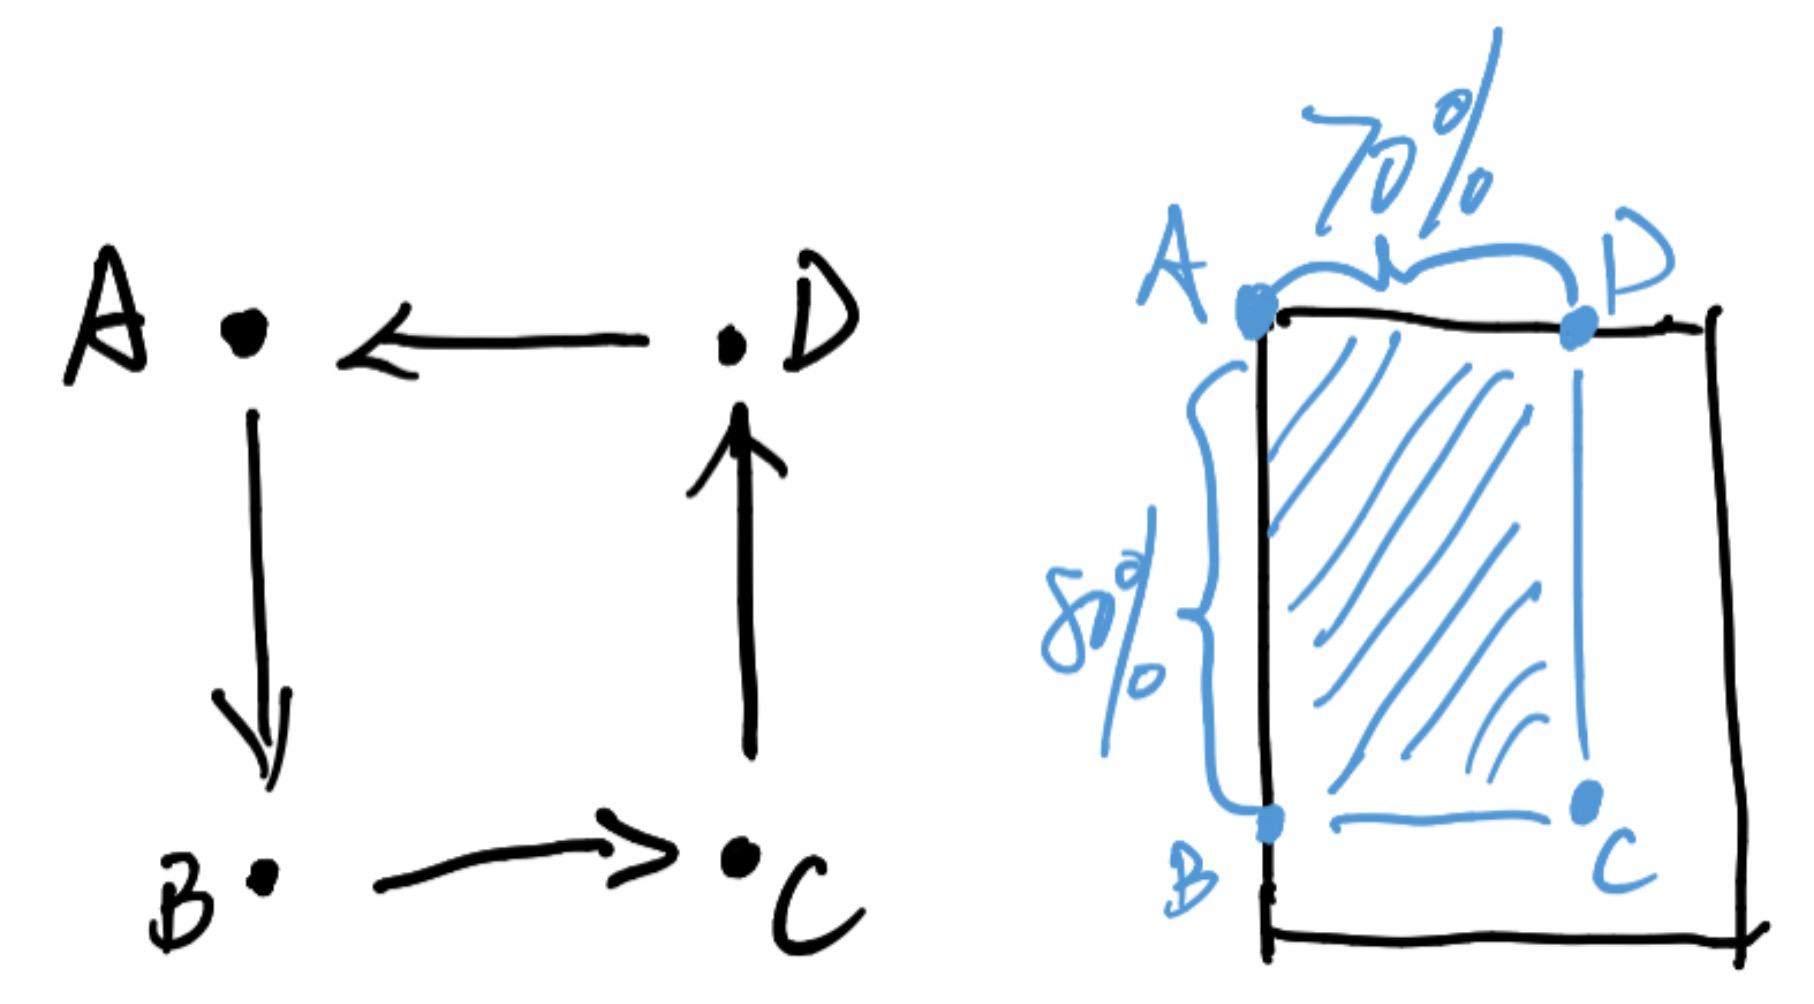 A
D
B
C
70%
A
D
80%
B
C